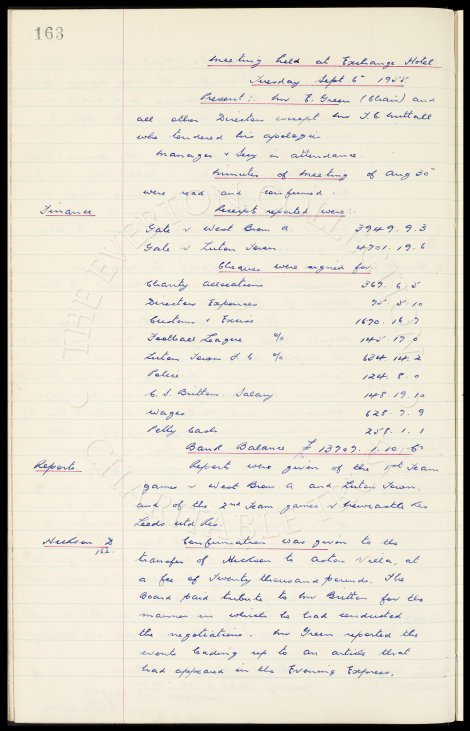 163
Meeting held at Exchange Hotel
Tuesday Sept 6th 1955
Present: Mr E. Green (Chair) and
all other Directors except Mr T.C. Nuttall
who tendered his apologies.
Manager & Secy in attendance.
Minutes of Meeting of Aug 30th
were read and confirmed.
Finance Receipts reported were:-
Gate v West Brom A. 3949. 9. 3
Gate v Luton Town. 4701. 19. 6
Cheques were signed for:-
Charity Allocations 367. 6. 5
Directors Expenses 75. 5. 10
Customs & Excise 1670. 16. 7
Football League % 145. 17. 0
Luton Town F.C. % 634. 14. 2
Police 124. 8. 0
C.S. Britton. Salary 148. 19. 10
Wages 628. 7. 9
Petty Cash 258. 1. 1
Bank Balance £ 13707. 1. 10
Reports Report were given of the 1st Team
games v West Brom. A and Luton Town,
and of the 2nd Team games v Newcastle Res
Leeds Utd Res.
Hickson D Confirmation was given to the
162.
transfer of Hickson to Aston Villa, at
a fee of Twenty thousand pounds. The
Board paid tribute to Mr Britton for the
manner in which he had conducted
the negotiations. Mr Green reported the
events leading up to an article that
had appeared in the Evening Express.
THE EVERTON COLLECTION
CHARITABLE TRUST